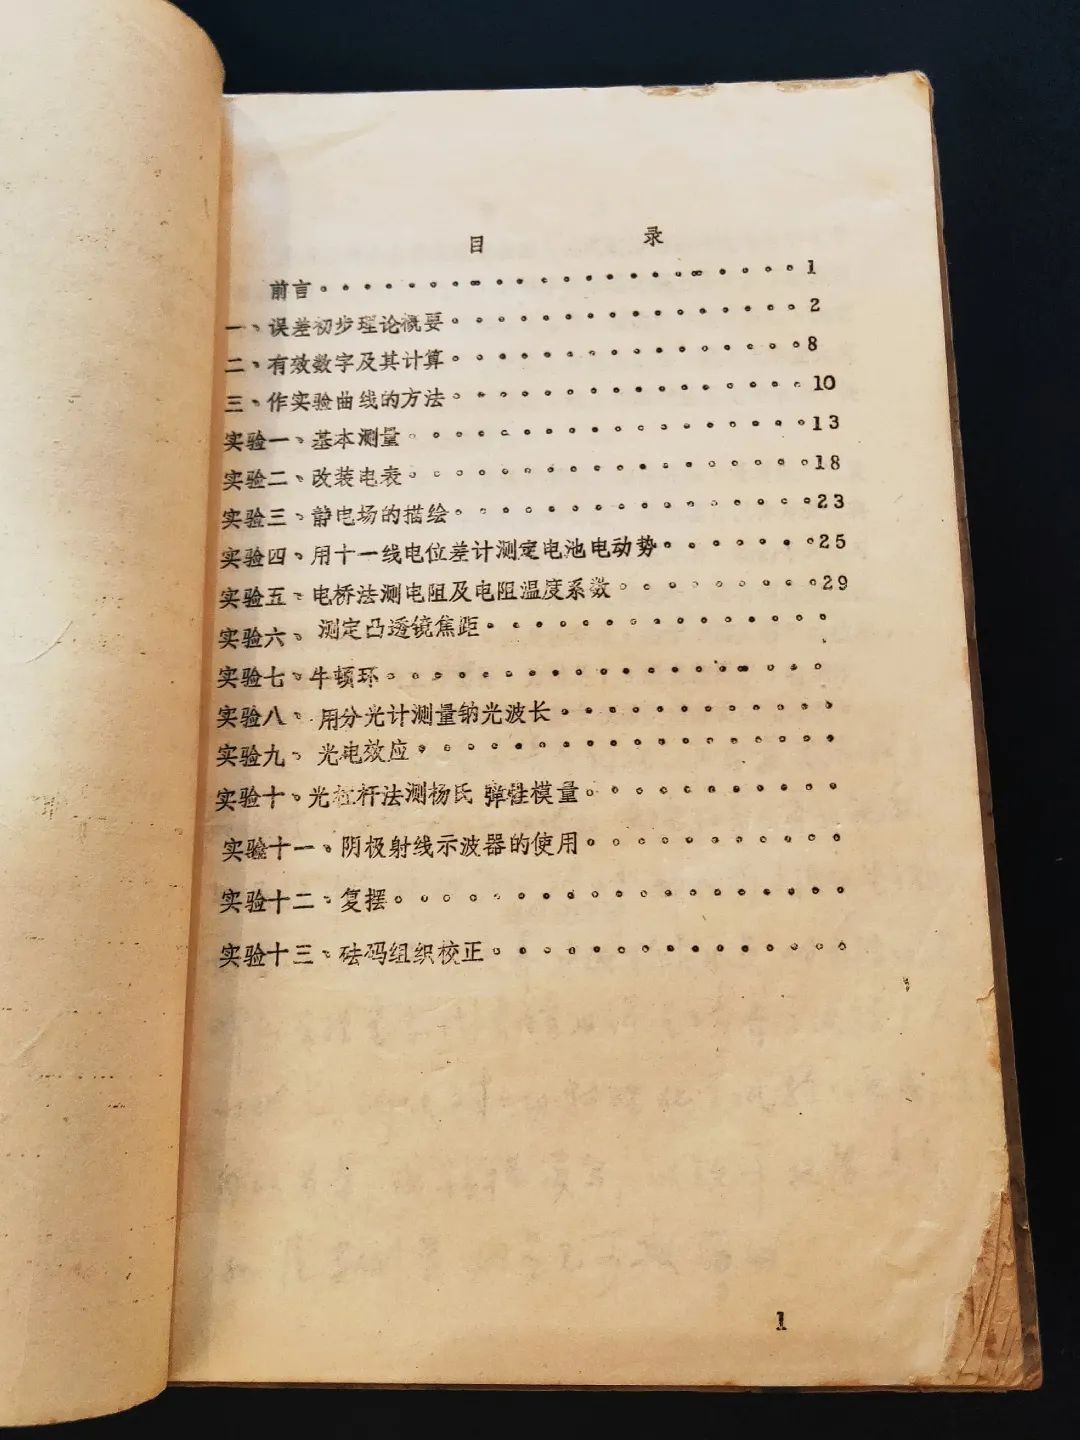 目 录
前言・・・・・・・・・・・・・・・・・・・・1
一、误差初步理论概要・・・・・・・・・・・・・・・2
二、有效数字及其计算・・・・・・・・・・・・・・・8
三、作实验曲线的方法・・・・・・・・・・・・・・・10
实验一、基本测量・・・・・・・・・・・・・・・・・13
实验二、改装电表・・・・・・・・・・・・・・・・・18
实验三、静电场的描绘・・・・・・・・・・・・・・・23
实验四、用十一线电位差计测定电池电动势・・・・・・・25
实验五、电桥法测电阻及电阻温度系数・・・・・・・・・29
实验六、测定凸透镜焦距・・・・・・・・・・・・・・・
实验七、牛顿环・・・・・・・・・・・・・・・・・・・
实验八、用分光计测量钠光波长・・・・・・・・・・・・
实验九、光电效应・・・・・・・・・・・・・・・・・・
实验十、光杠杆法测杨氏弹性模量・・・・・・・・・・・
实验十一、阴极射线示波器的使用・・・・・・・・・・・
实验十二、复摆・・・・・・・・・・・・・・・・・・・
实验十三、砝码组织校正・・・・・・・・・・・・・・・
1